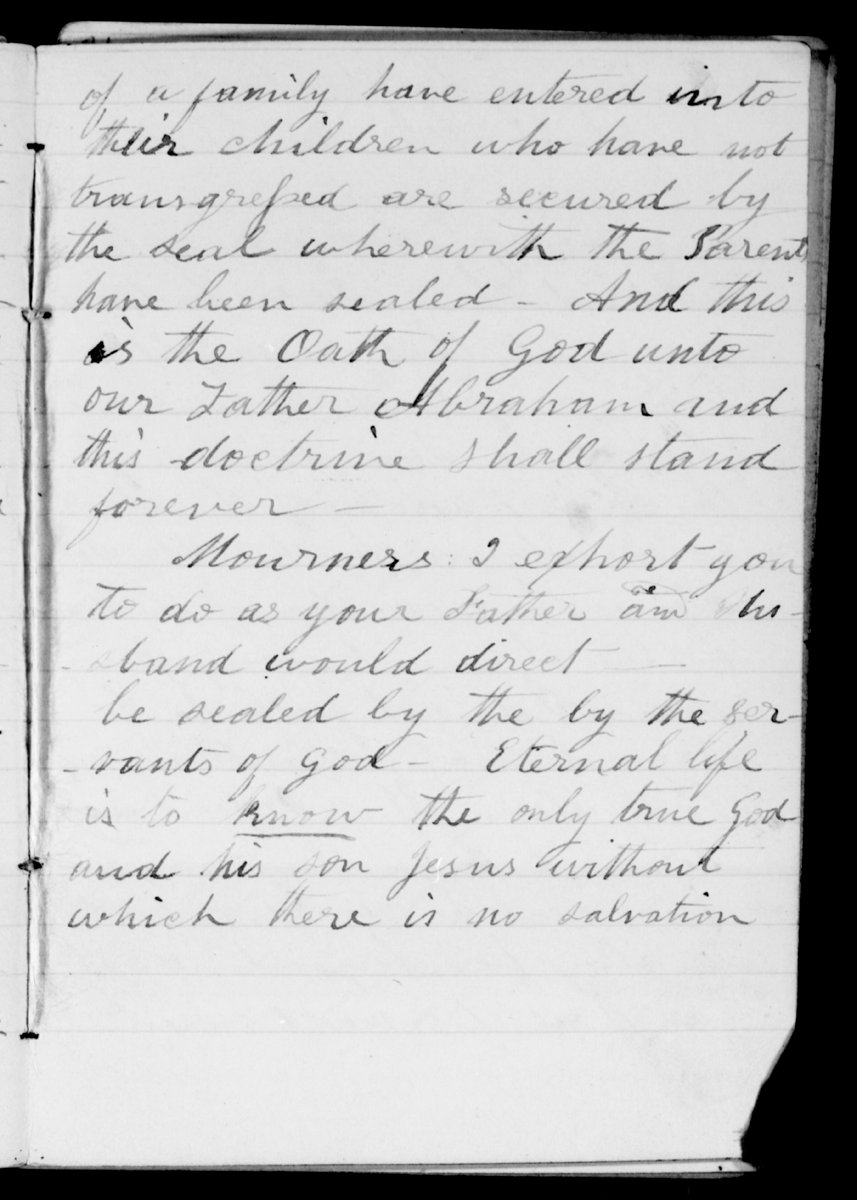 of a family have entered into
their children who have not
transgressed are secured by
the seal wherewith the Parents
have been sealed - And this
is the Oath of God unto
our Father Abraham and
this doctrine shall stand
forever —
Mourners: I exhort you
to do as your Father and Hu-
sband would direct —
be sealed by the by the ser-
-vants of God - Eternal life
is to know the only true God
and his son Jesus without
which there is no salvation